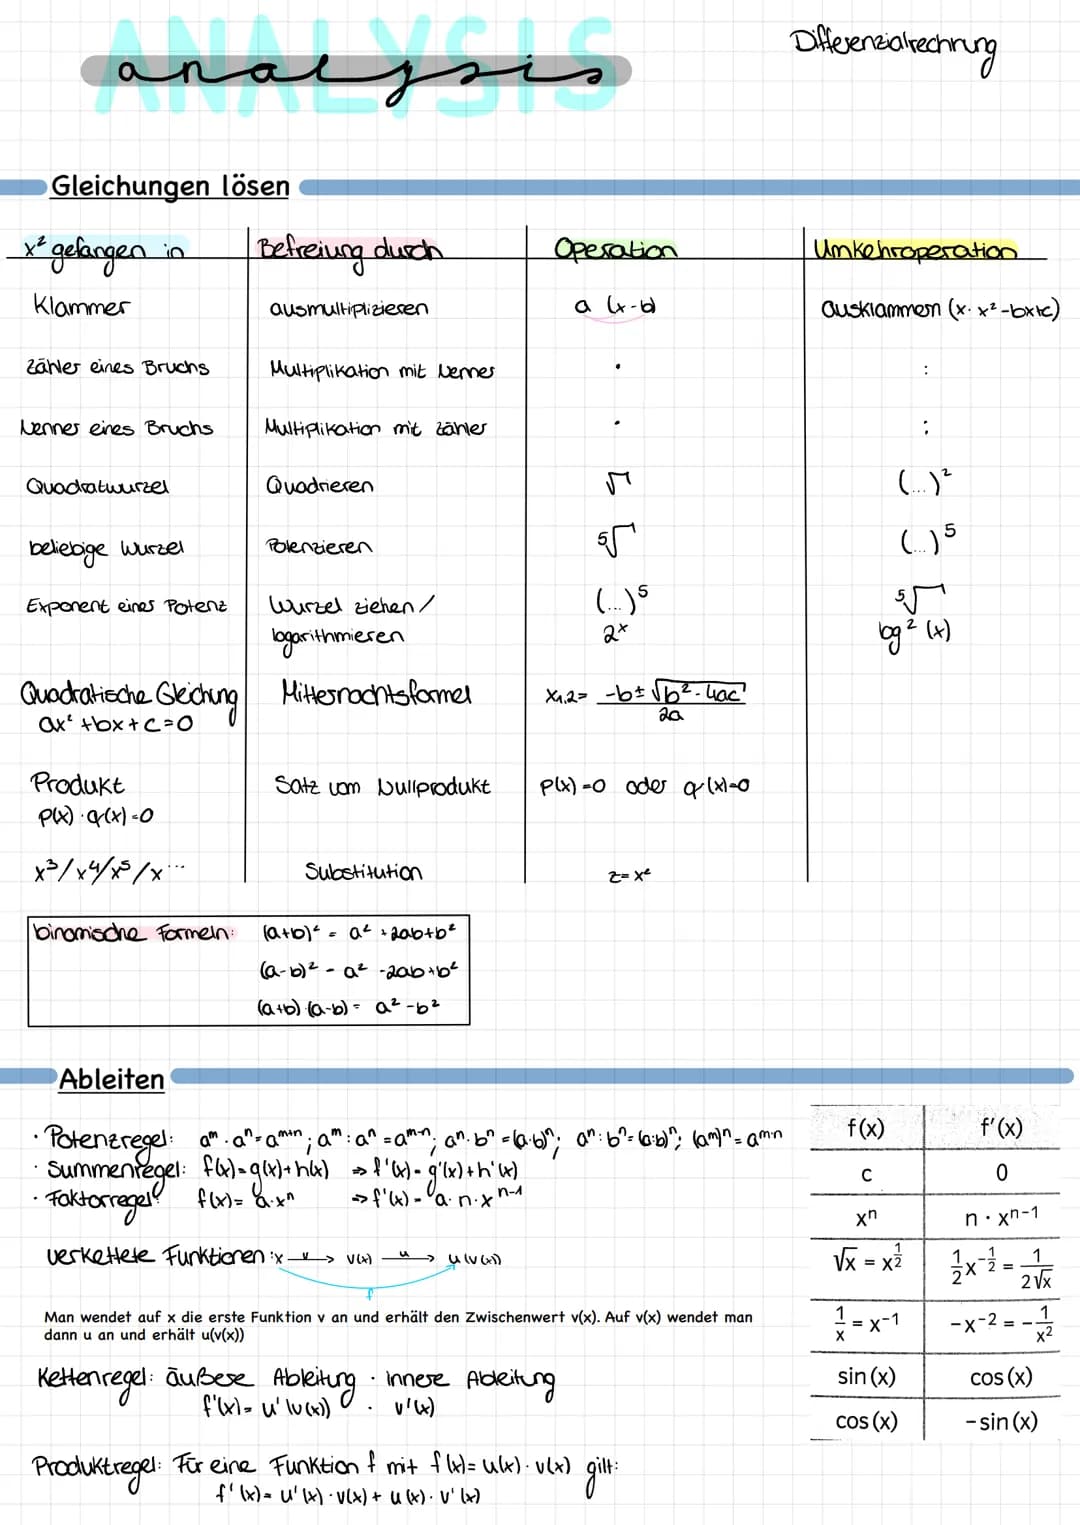 ANALYSIS
analysis
Differenzialrechnung
Gleichungen lösen
x² gefangen in | Befreiung durch | Operation | Umkehroperation
Klammer | ausmultiplizieren | a (x-b) | Ausklammern (x· x²-bx+c)
Zähler eines Bruchs | Multiplikation mit Nenner | · | :
Nenner eines Bruchs | Multiplikation mit Zähler | · | :
Quadratwurzel | Quadrieren | √ | (...)²
beliebige Wurzel | Potenzieren | ⁵√ | (...)⁵
Exponent einer Potenz | Wurzel ziehen/ | (...)⁵ | ⁵√
logarithmieren | 2ˣ | log² (x)
Quadratische Gleichung | Mitternachtsformel | x₁,₂= (-b±√(b²-4ac))/2a
ax²+bx+c=0
Produkt | Satz vom Nullprodukt | p(x)=0 oder q(x)=0
p(x)·q(x)=0
x³/x⁴/x⁵/x^… | Substitution | z=x²
binomische Formeln: (a+b)² = a²+2ab+b²
(a-b)² = a²-2ab+b²
(a+b)·(a-b)= a²-b²
Ableiten
· Potenzregel: aᵐ·aⁿ=aᵐ⁺ⁿ; aᵐ:aⁿ=aᵐ⁻ⁿ; aⁿ·bⁿ=(a·b)ⁿ; aⁿ:bⁿ=(a:b)ⁿ; (aᵐ)ⁿ=aᵐ·ⁿ
· Summenregel: f(x)=g(x)+h(x) ⇒ f'(x)=g'(x)+h'(x)
· Faktorregel: f(x)= a·xⁿ ⇒ f'(x)=a·n·xⁿ⁻¹
verkettete Funktionen: x —v→ v(x) —u→ u(v(x))
f
Man wendet auf x die erste Funktion v an und erhält den Zwischenwert v(x). Auf v(x) wendet man
dann u an und erhält u(v(x))
Kettenregel: äußere Ableitung · innere Ableitung
f'(x)= u'(v(x)) · v'(x)
Produktregel: Für eine Funktion f mit f(x)=u(x)·v(x) gilt:
f'(x)= u'(x)·v(x)+u(x)·v'(x)
f(x) | f'(x)
c | 0
xⁿ | n · xⁿ⁻¹
√x = x^(1/2) | 1/2 x^(-1/2) = 1/(2√x)
1/x = x⁻¹ | -x⁻² = -1/x²
sin(x) | cos(x)
cos(x) | -sin(x)